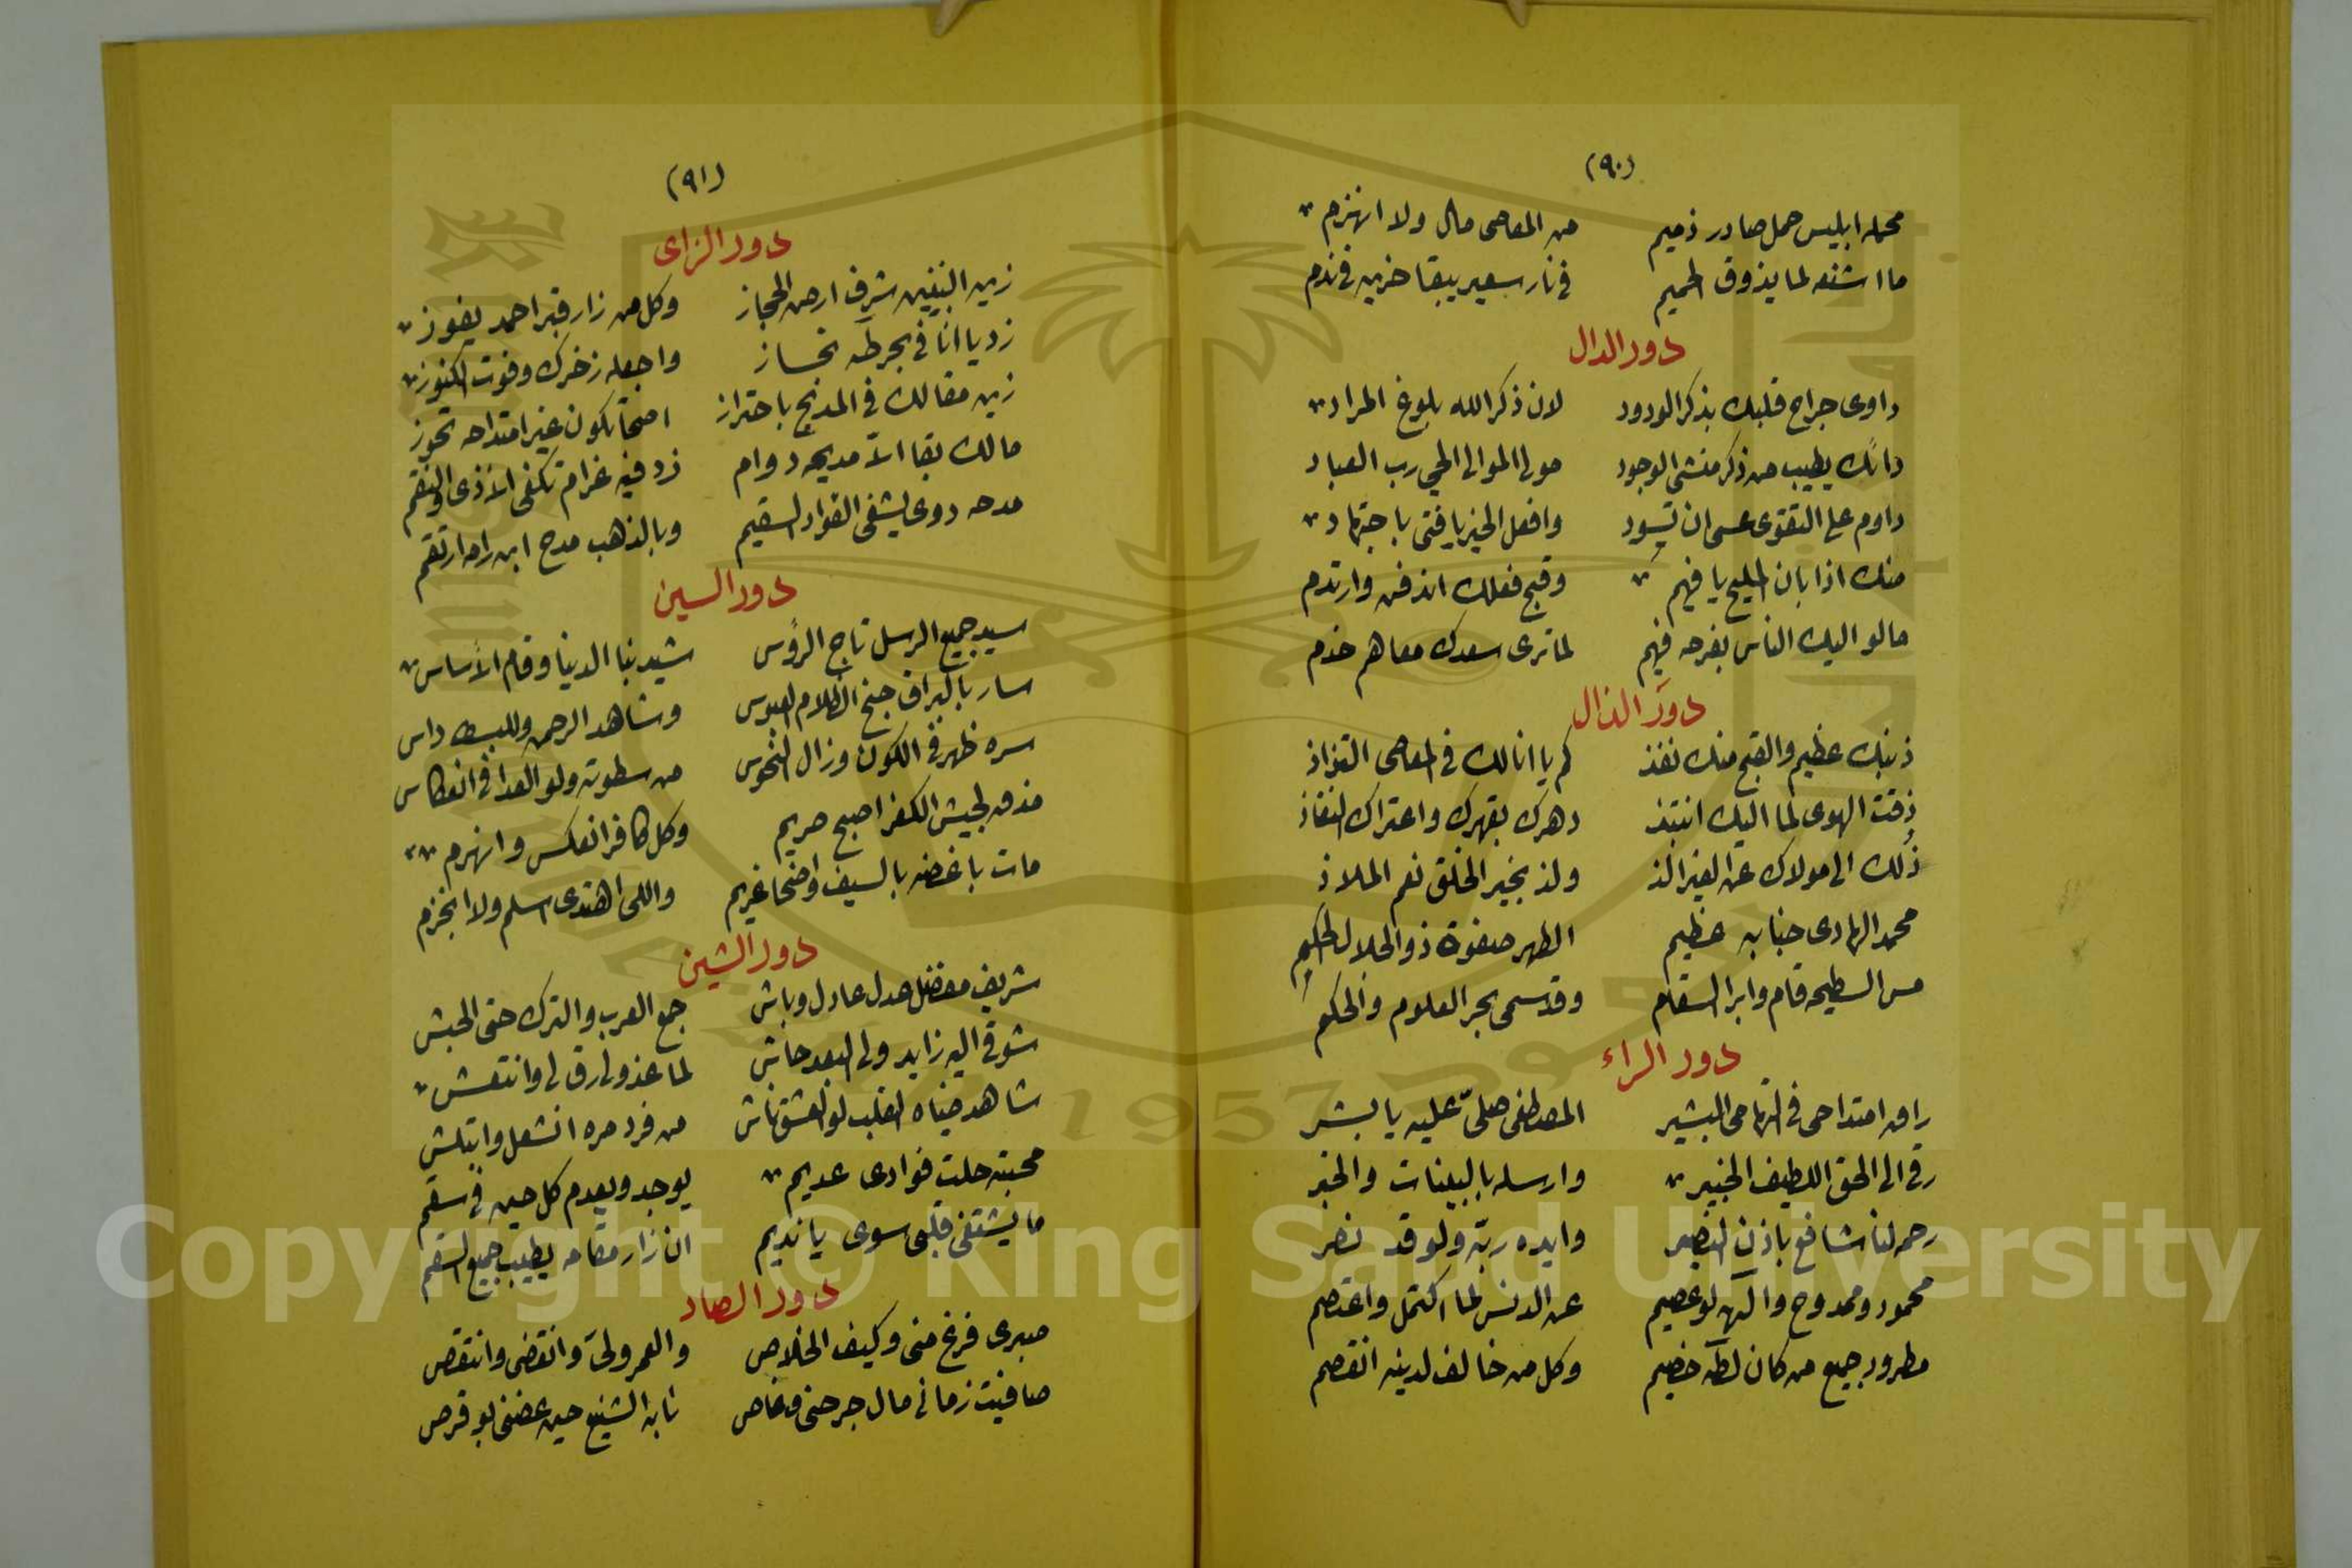 (٩٠)
محمله ابليس حمل صادر ذميم من المعاصى مال ولا انهزم
ما اشنعه لما يذوق الحميم فى نار سعير يبقا حزين فى ندم
دور الدال
داوى جراح قلبك بذكر الودود لان ذكر الله بلوغ المراد
دائك يطيب من ذكر منشى الوجود مولى الموالى الحى رب العباد
داوم على التقوى عسى ان تسود وافعل الخير يا فتى باجتهاد
منك اذا بان المليح يا فهيم وقبح فعلك اندفن وارتدم
مالو اليك الناس بفرحه فهيم لما ترى سعدك معاهم خدم
دور الذال
ذنبك عظيم والقبح منك نفذ كم يا انا لك فى المعاصى التذاذ
ذقت الهوى لما اليك انتبذ دهرك بقهرك واعتراك النفاذ
ذلك الى مولاك عن الغير الذ ولذ بخير الخلق نعم الملاذ
محمد الهادى جنابه عظيم الطهر صفوة ذو الجلال الحكيم
مس السطيحه قام وابرا السقام وقد سمى بحر العلوم والحكم
دور الراء
راق امتداحى فى التهامى البشير المصطفى صلىّ عليه يا بشر
رقى الى الحق اللطيف الخبير وارسله بالبينات والخبر
رحمه لنا شافع باذن النصير وايده ربّه ولو قد نصر
محمود وممدوح والآله لو عصيم عن الدنس لما اكتمل واعتصم
مطرود جميع من كان لطه خصيم وكل من خالف لدينه انقصم
(٩١)
دور الزاى
زين النبيين شرف ارض الحجاز وكل من زار قبر احمد يفوز
زد يا انا فى بحر طه تحساز واجعله زخرك وفوت الكنوز
زين مقالك فى المديح باحتراز اصحا تكون غير امتداحه تحوز
مالك بقا الّا مديحه دوام زد فيه غرام تكفى الأذى والنقم
مدحه دوى يشفى الفؤاد السقيم وبالذهب مدح ابن رامه ارتقم
دور السين
سيد جميع الرسل تاج الرؤس شيد بنا الدينا وقام الأساس
سار بالبراق جنح الظلام العبوس وشاهد الرحمن وللبسط داس
سره ظهر فى الكون وزال النحوس من سطوته ولو العدا فى انعكاس
منه لجيش الكفر اصبح صريم وكل كافر انعكس وانهزم
مات باغضه بالسيف واضحا غريم واللى اهتدى اسلم ولا انخزم
دور الشين
شريف مفضل عدل عادل وباش جمع العرب والترك حتى الحبش
شوقى اليه زايد ولى البعد حاش لما عذولى رق لى وانتعش
شاهد ضياه القلب لو العشق ناش من فرد مره انشعل وابتلش
محبته حلت فؤادى عديم يوجد ويعدم كل حين فى سقم
ما يشتفى قلبى سوى يا نديم ان زار مقامه يطيب جميع السقم
دور الصاد
صبرى فرغ منى وكيف الخلاص والعمر ولى وانقضى وانتقص
صافيت زمانى مال جرحنى وغاص نابه الشنيع حين عضنى لو قرص
Copyright © King Saud University
1957